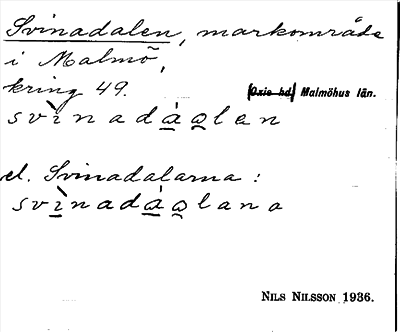 Svinadalen, markområde
i Malmö,
kring 49. [Oxie hd] Malmöhus län.
svìnadáalen
el. Svinadalarna:
svìnadáalana
NILS NILSSON 1936.